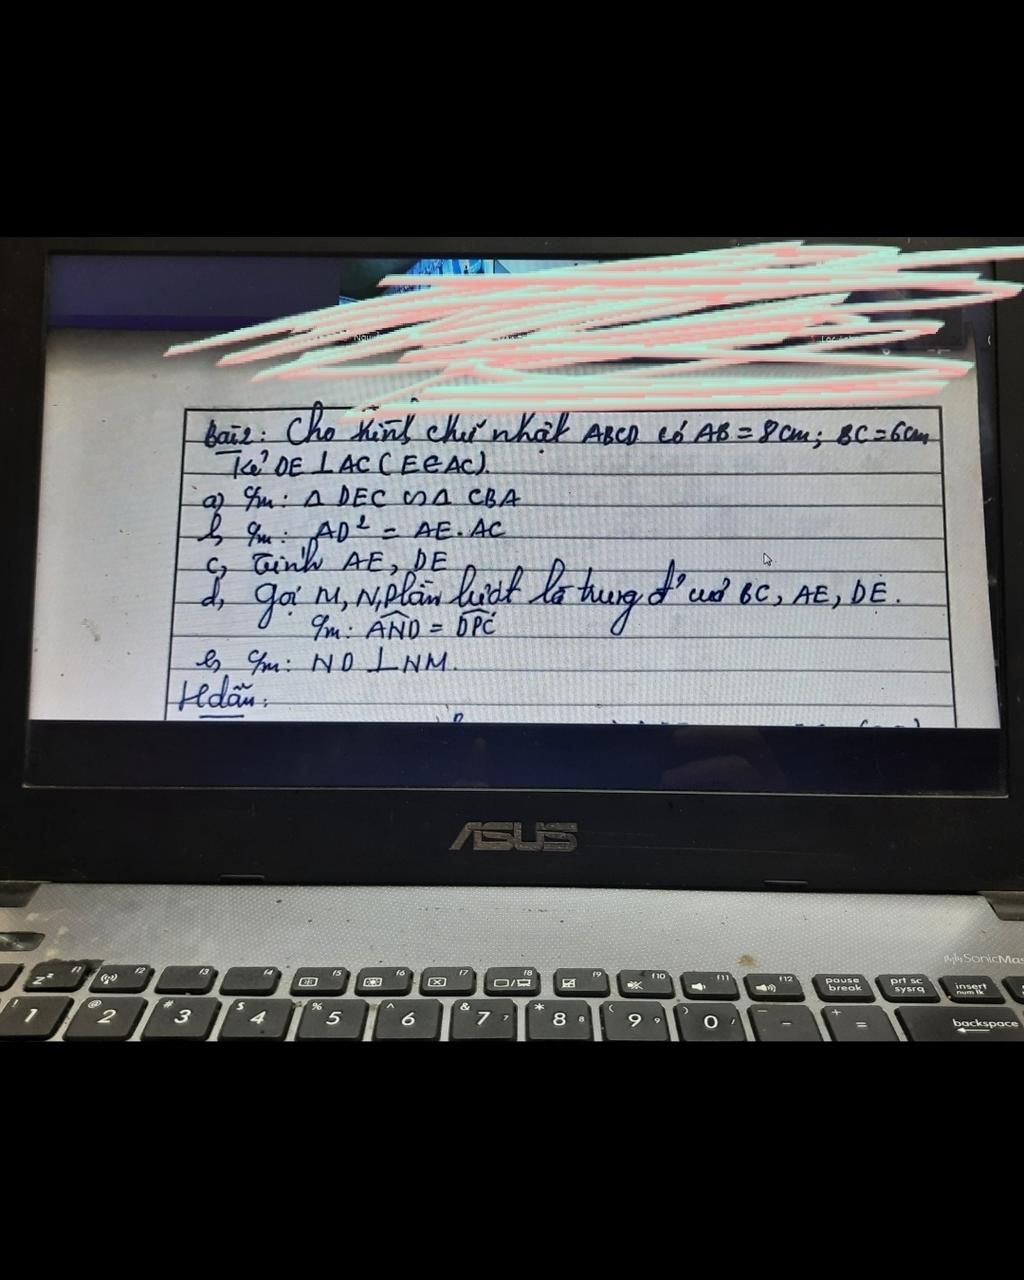 Bài 2: Cho hình chữ nhật ABCD có AB = 8cm; BC = 6cm
Kẻ DE ⊥ AC (E∈AC).
a) c/m: Δ DEC ∽ Δ CBA
b, c/m: AD² = AE.AC
c, Tính AE, DE
d, gọi M, N, P lần lượt là trung đ' của BC, AE, DE.
c/m: \widehat{AND} = \widehat{DPC}
e, c/m: ND ⊥ NM.
Hdẫn:
ASUS
SonicMas
zᶻ f1 f2 f3 f4 f5 f6 f7 f8 f9 f10 f11 f12 pause break prt sc sysrq insert num lk
! 1 @ 2 # 3 $ 4 % 5 ^ 6 & 7 7 * 8 8 ( 9 9 ) 0 / - + = backspace